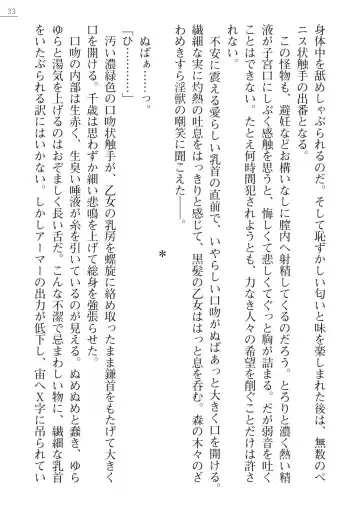 33
身体中を舐めしゃぶられるのだ。そして恥ずかしい匂いと味を楽しまれた後は、無数のペ
ニス状触手の出番となる。
この怪物も、避妊などお構いなしに膣内へ射精してくるのだろう。とろりと濃く熱い精
液が子宮口にしぶく感触を思うと、悔しくて悲しくてぐっと胸が詰まる。だが弱音を吐く
ことはできない。たとえ何時間犯されようとも、力なき人々の希望を削ぐことだけは許さ
れない。
不安に震える愛らしい乳首の直前で、いやらしい口吻がぬばあっと大きく口を開ける。
繊細な実に灼熱の吐息をはっきりと感じて、黒髪の乙女ははっと息を呑む。森の木々のざ
わめきすら淫獣の嘲笑に聞こえた――。
＊
ぬばぁ……っ。
「ひ………っ」
汚い濃緑色の口吻状触手が、乙女の乳房を螺旋に絡め取ったまま鎌首をもたげて大きく
口を開ける。千歳は思わずか細い悲鳴を上げて総身を強張らせた。
口吻の内部は生赤く、生臭い唾液が糸を引いているのが見える。ぬめぬめと蠢き、ゆら
ゆらと湯気を上げるのはおぞましく長い舌だ。こんな不潔で忌まわしい物に、繊細な乳首
をいたぶられる訳にはいかない。しかしアーマーの出力が低下し、宙へX字に吊られてい